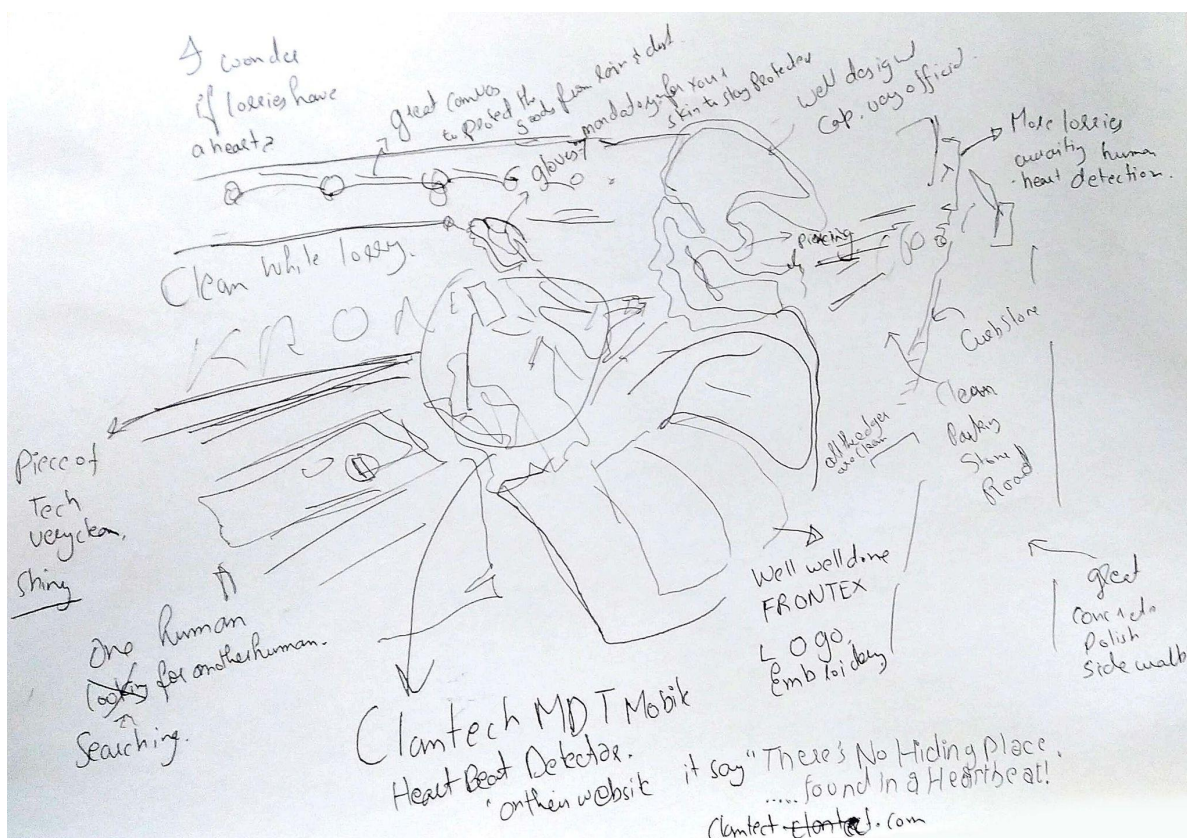 I wonder
if lorries have
a heart?
great canvas
to protect the
goods from rain & dust
gloves
mandatory for your
skin to stay protected
Well design
cap. very official
More lorries
awaiting human
heart detection.
Clean White lorry.
piercing
KRONE
Curbstone
Clean
Stone
Road
all the edges
are clean
Piece of
Tech
very clean.
Shiny
One human
looking for another human.
Searching.
Well well done
FRONTEX
LOgo.
Embroidery
great
Polish
side walk
Clamtech MDT Mobile
Heart Beat Detector.
"on their website it say "There's No Hiding Place.
..... found in a Heartbeat!
Clamtect .com